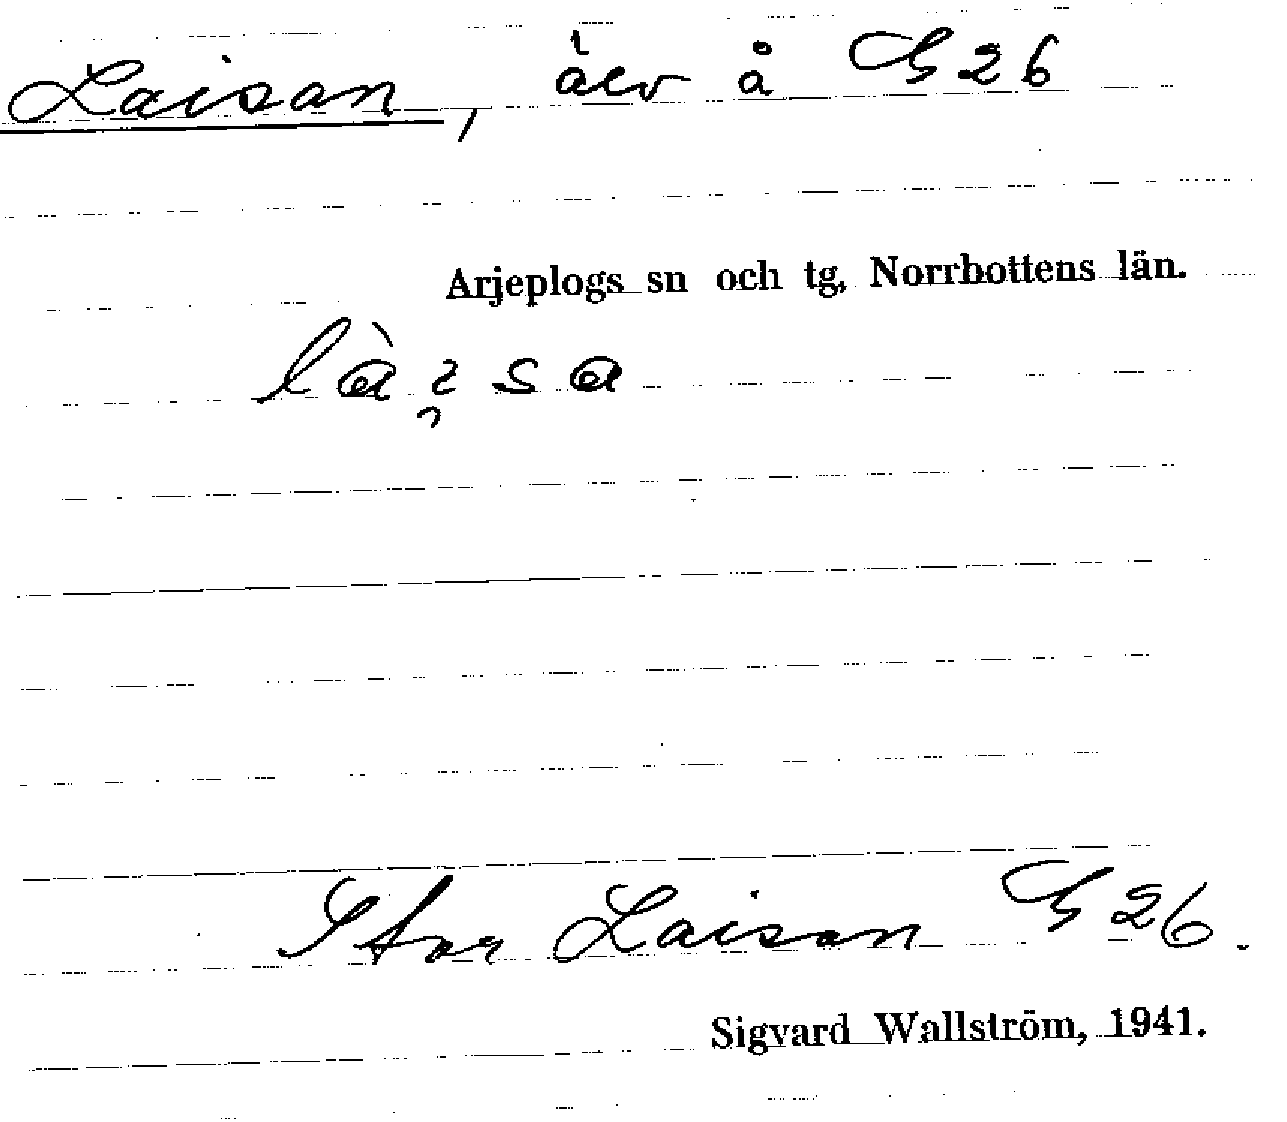 Laisan, älv å G26
Arjeplogs sn och tg, Norrbottens län.
Stor Laisan G26.
Sigvard Wallström, 1941.